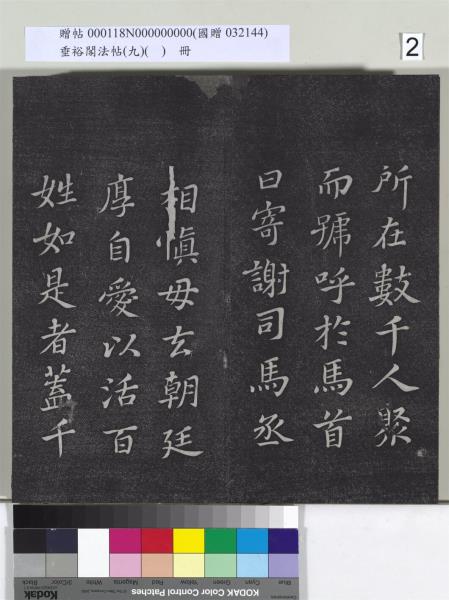 贈帖 000118N000000000(國贈 032144)
垂裕閣法帖(九)(　)　冊
2
所在數千人聚
而號呼於馬首
曰寄謝司馬丞
相慎毋去朝廷
厚自愛以活百
姓如是者蓋千
Blue Cyan Green Yellow Red Magenta White 3/Color Black
KODAK Color Control Patches
Kodak